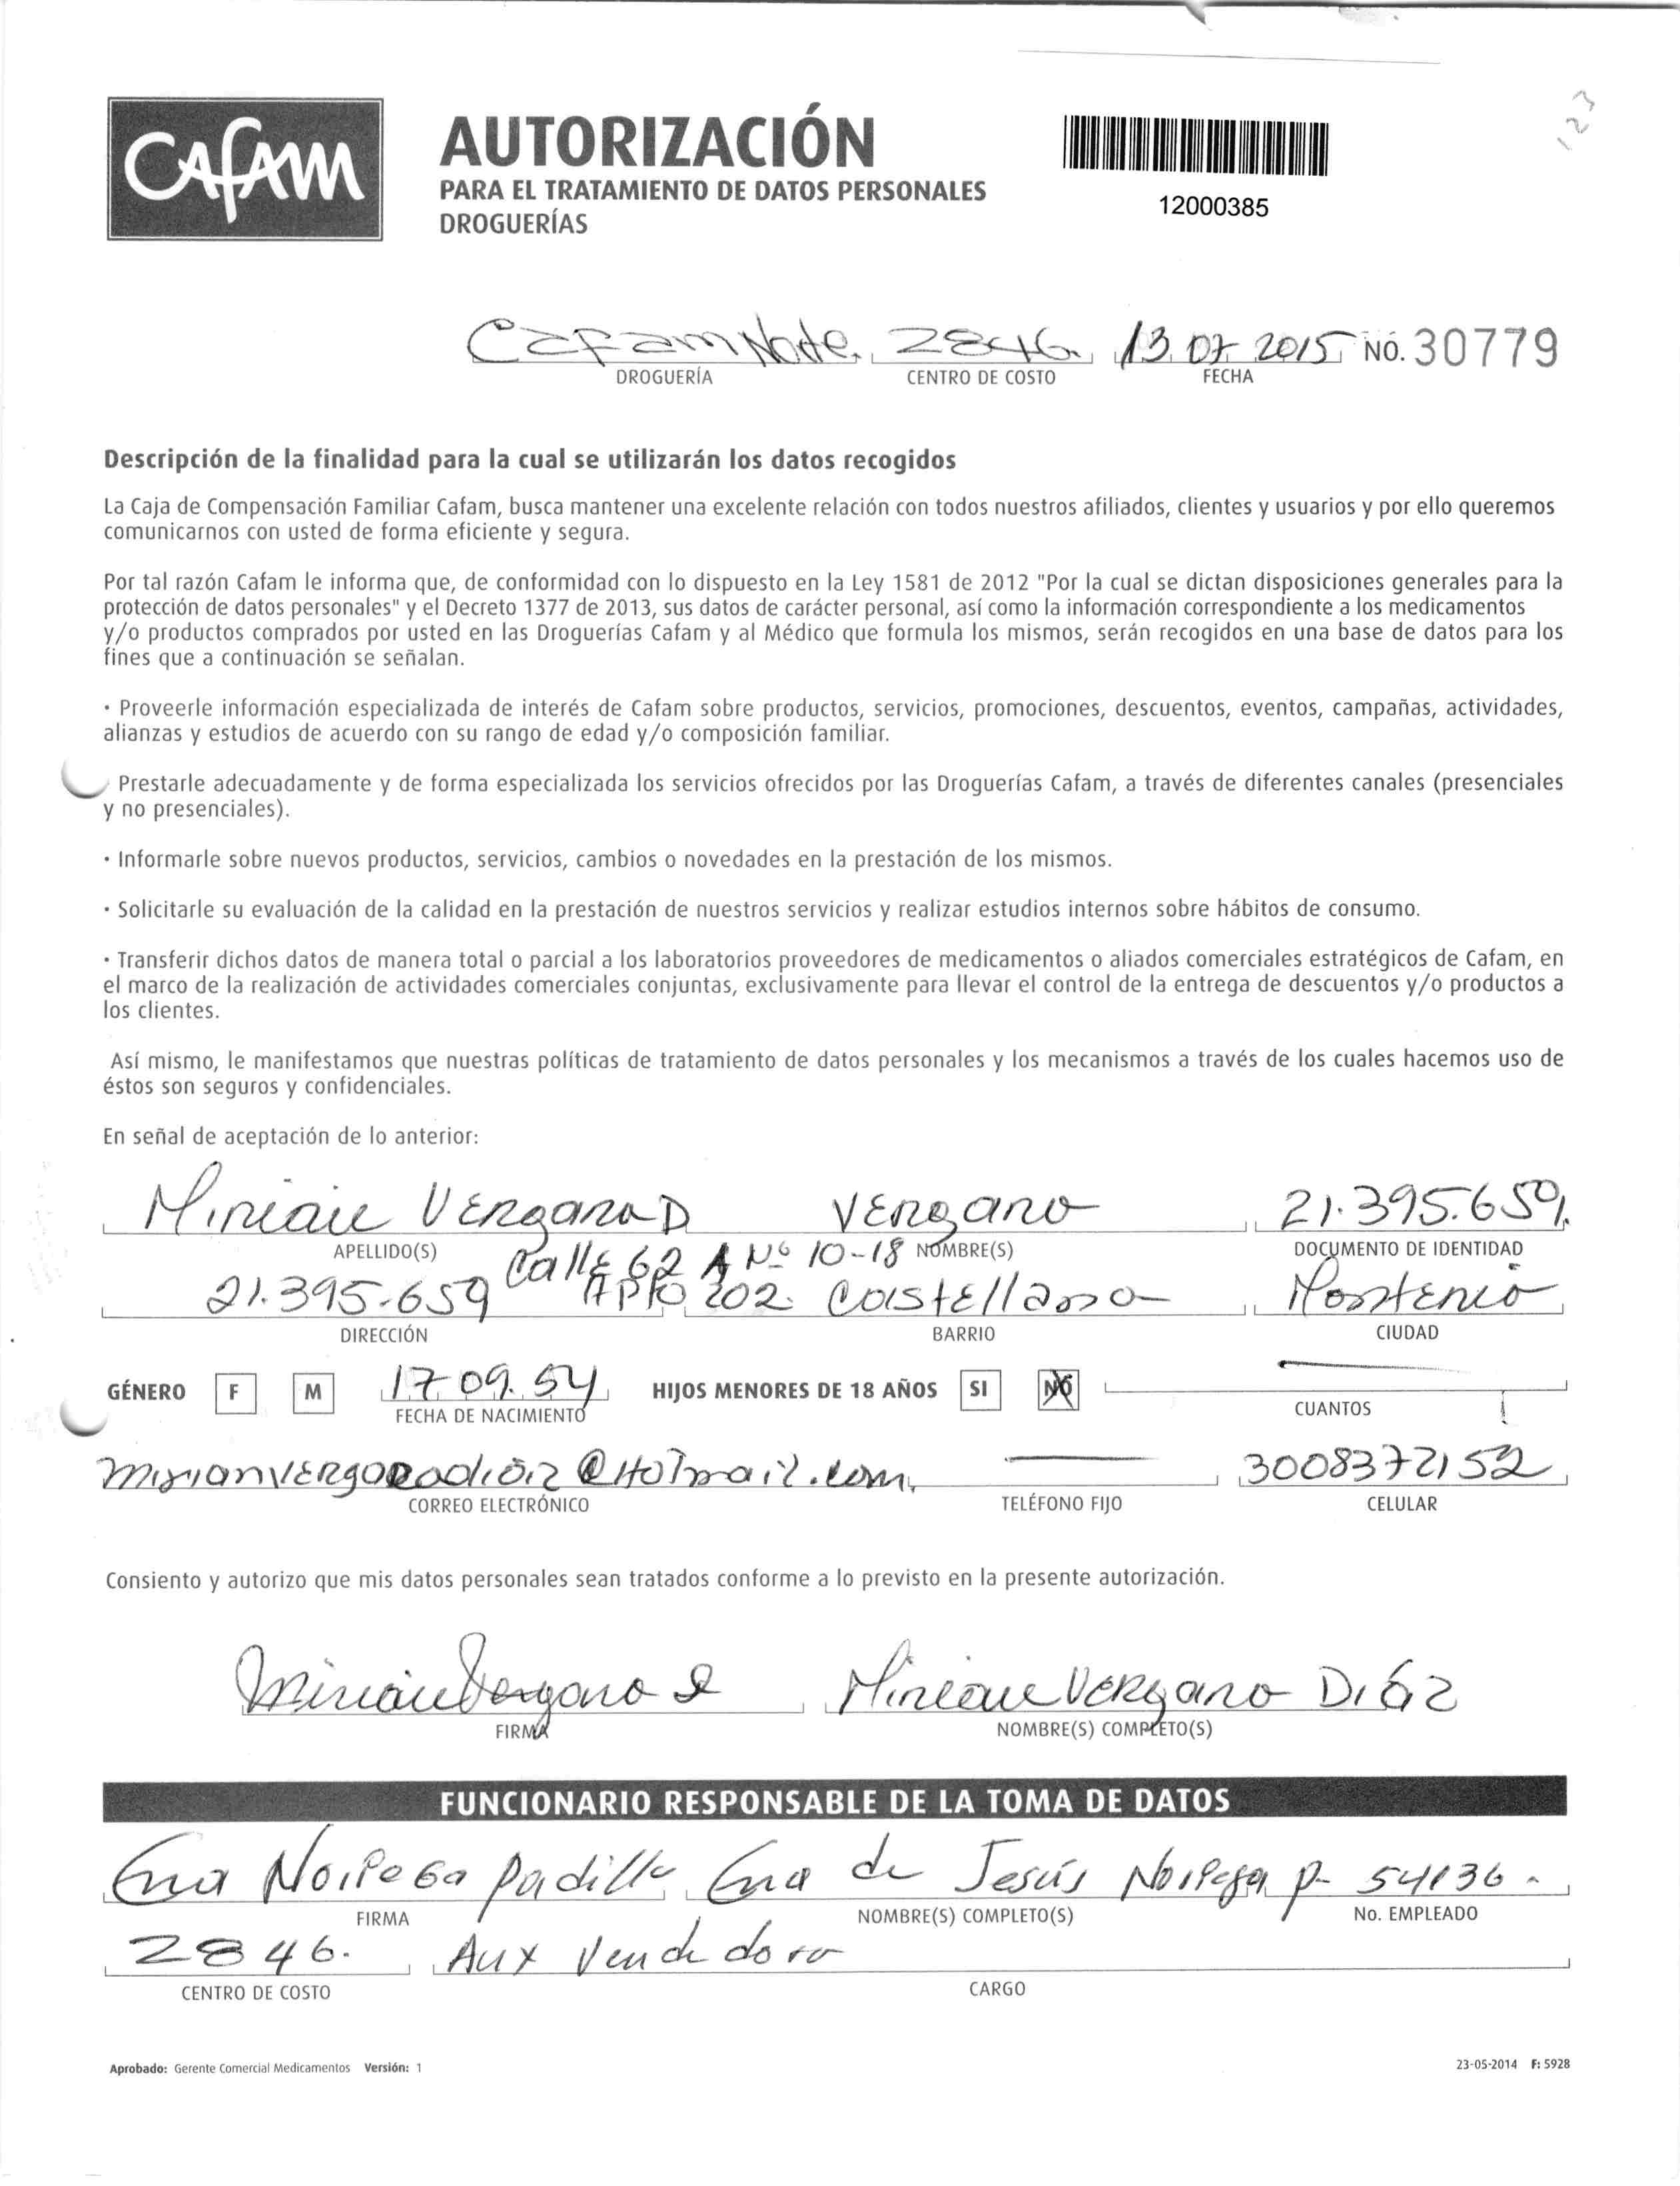 CAFAM
AUTORIZACIÓN
PARA EL TRATAMIENTO DE DATOS PERSONALES
DROGUERÍAS
12000385
123
Cafam Norte. 2846. 13 07 2015 NO. 30779
DROGUERÍA CENTRO DE COSTO FECHA
Descripción de la finalidad para la cual se utilizarán los datos recogidos
La Caja de Compensación Familiar Cafam, busca mantener una excelente relación con todos nuestros afiliados, clientes y usuarios y por ello queremos
comunicarnos con usted de forma eficiente y segura.
Por tal razón Cafam le informa que, de conformidad con lo dispuesto en la Ley 1581 de 2012 "Por la cual se dictan disposiciones generales para la
protección de datos personales" y el Decreto 1377 de 2013, sus datos de carácter personal, así como la información correspondiente a los medicamentos
y/o productos comprados por usted en las Droguerías Cafam y al Médico que formula los mismos, serán recogidos en una base de datos para los
fines que a continuación se señalan.
· Proveerle información especializada de interés de Cafam sobre productos, servicios, promociones, descuentos, eventos, campañas, actividades,
alianzas y estudios de acuerdo con su rango de edad y/o composición familiar.
Prestarle adecuadamente y de forma especializada los servicios ofrecidos por las Droguerías Cafam, a través de diferentes canales (presenciales
y no presenciales).
· Informarle sobre nuevos productos, servicios, cambios o novedades en la prestación de los mismos.
· Solicitarle su evaluación de la calidad en la prestación de nuestros servicios y realizar estudios internos sobre hábitos de consumo.
· Transferir dichos datos de manera total o parcial a los laboratorios proveedores de medicamentos o aliados comerciales estratégicos de Cafam, en
el marco de la realización de actividades comerciales conjuntas, exclusivamente para llevar el control de la entrega de descuentos y/o productos a
los clientes.
Así mismo, le manifestamos que nuestras políticas de tratamiento de datos personales y los mecanismos a través de los cuales hacemos uso de
éstos son seguros y confidenciales.
En señal de aceptación de lo anterior:
Miriam Vergara D Vergara 21.395.659
APELLIDO(S) NOMBRE(S) DOCUMENTO DE IDENTIDAD
Calle 62 A Nº 10-18
21.395.659 Apto 202. Castellana Montería
DIRECCIÓN BARRIO CIUDAD
GÉNERO F M 17.09.54 HIJOS MENORES DE 18 AÑOS SI NO
FECHA DE NACIMIENTO CUANTOS
mirianvergaradiaz@Hotmail.com. 3008372152
CORREO ELECTRÓNICO TELÉFONO FIJO CELULAR
Consiento y autorizo que mis datos personales sean tratados conforme a lo previsto en la presente autorización.
Miriam Vergara D Miriam Vergara Diaz
FIRMA NOMBRE(S) COMPLETO(S)
FUNCIONARIO RESPONSABLE DE LA TOMA DE DATOS
Ena Noriega Padilla Ena de Jesús Noriega p- 54136.
FIRMA NOMBRE(S) COMPLETO(S) No. EMPLEADO
2846. Aux Vendedora
CENTRO DE COSTO CARGO
Aprobado: Gerente Comercial Medicamentos Versión: 1 23-05-2014 F: 5928